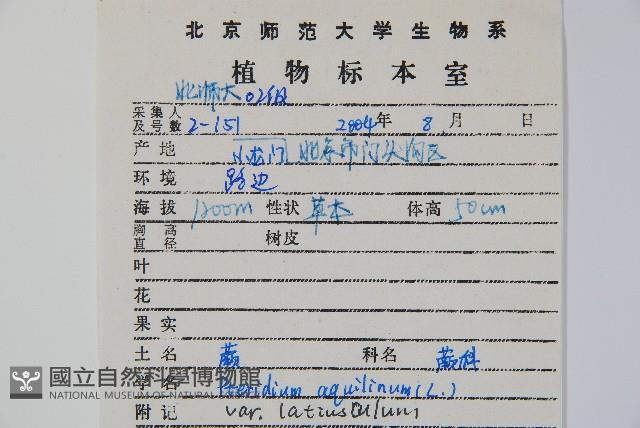 北京师范大学生物系
植物标本室
北师大02级
采集人及号数 2-151 2004年 8月 日
产地 小龙门 北京市门头沟区
环境 路边
海拔 1200m 性状 草本 体高 50cm
胸高直径 树皮
叶
花
果实
土名 蕨 科名 蕨科
学名 Pteridium aquilinum (L.)
附记 var. latiusculum
國立自然科學博物館
NATIONAL MUSEUM OF NATURAL